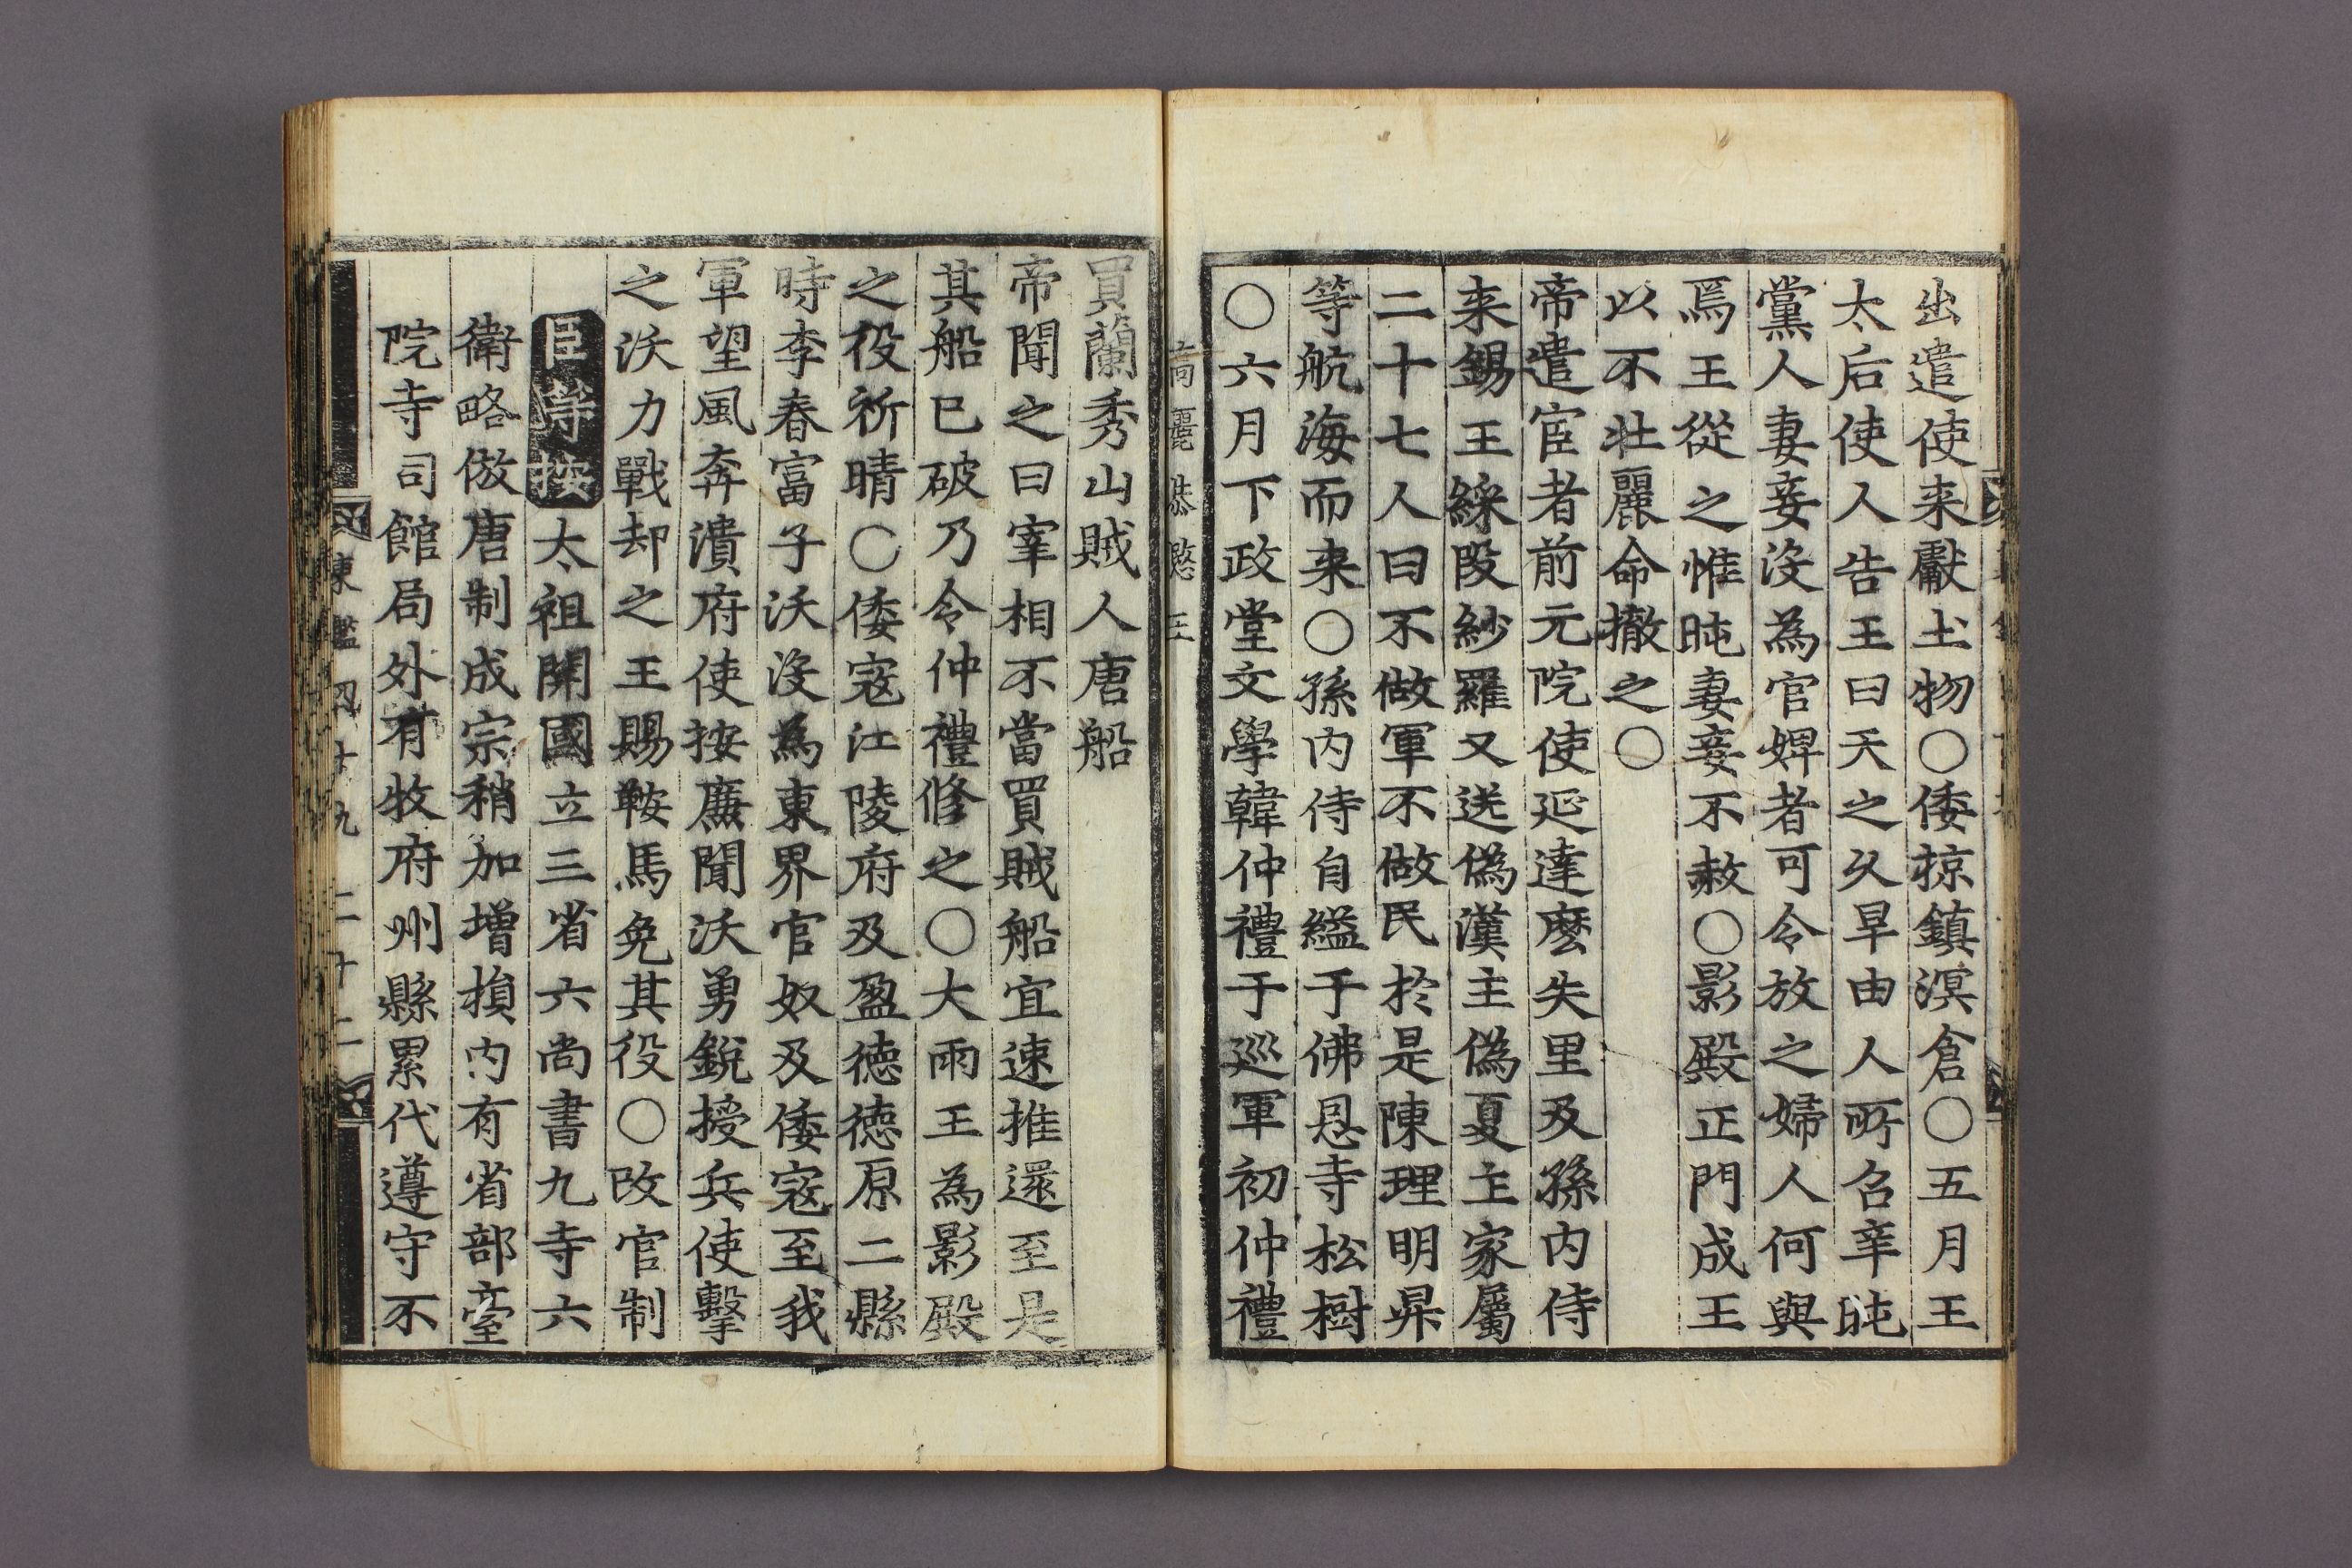 出遣使来獻土物〇倭掠鎮溟倉〇五月王
太后使人告王曰天之久旱由人所召辛旽
黨人妻妾沒為官婢者可令放之婦人何與
焉王從之惟旽妻妾不赦〇影殿正門成王
以不壯麗命撤之〇
帝遣宦者前元院使延達麽失里及孫内侍
来錫王綵段紗羅又送偽漢主偽夏主家屬
二十七人曰不做軍不做民於是陳理明昇
等航海而来〇孫内侍自縊于佛恩寺松樹
〇六月下政堂文學韓仲禮于巡軍初仲禮
高麗恭愍王
買蘭秀山賊人唐船
帝聞之曰宰相不當買賊船宜速推還至是
其船已破乃令仲禮修之〇大雨王為影殿
之役祈晴〇倭寇江陵府及盈德德原二縣
時李春富子沃沒為東界官奴及倭寇至我
軍望風奔潰府使按廉聞沃勇銳授兵使擊
之沃力戰却之王賜鞍馬免其役〇改官制
臣等按太祖開國立三省六尚書九寺六
衛略倣唐制成宗稍加增損内有省部臺
院寺司館局外有牧府州縣累代遵守不
東鑑四十九 二十二